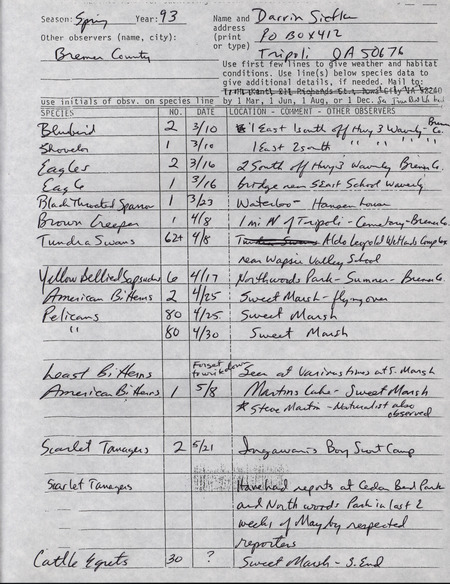 Season: Spring Year: 93
Name and address (print or type)
Darrin Siefken
PO BOX 412
Tripoli IA 50676
Other observers (name, city):
Bremer County
Use first few lines to give weather and habitat
conditions. Use line(s) below species data to
give additional details, if needed. Mail to:
use initials of obsv. on species line
by 1 Mar, 1 Jun, 1 Aug, or 1 Dec.
SPECIES NO. DATE LOCATION - COMMENT - OTHER OBSERVERS
Bluebird 2 3/10 1 East 1 south off Hwy 3 Waverly - Bremer Co.
Shoveler 1 3/10 1 East 2 south " " " " "
Eagles 2 3/16 2 South off Hwy 3 Waverly Bremer Co.
Eagle 1 3/16 bridge near West School Waverly
Black Throated Sparrow 1 3/23 Waterloo - Hansen house
Brown Creeper 1 4/8 1 mi N of Tripoli - Cemetary - Bremer Co.
Tundra Swans 62+ 4/8 Aldo Leopold Wetlands Complex
near Wapsie Valley School
Yellow Bellied Sapsucker 6 4/17 Northwoods Park - Sumner - Bremer Co.
American Bitterns 2 4/25 Sweet Marsh - flying over
Pelicans 80 4/25 Sweet Marsh
" 80 4/30 Sweet Marsh
Least Bitterns Forgot to write down Seen at various times at S. Marsh
American Bitterns 1 5/8 Martins Lake - Sweet Marsh
* Steve Martin - Naturalist also observed
Scarlet Tanagers 2 5/21 Ingawanis Boy Scout Camp
Scarlet Tanagers Have had reports at Cedar Bend Park
and North woods Park in last 2
weeks of May by respected
reporters
Cattle Egrets 30 ? Sweet Marsh - S. End